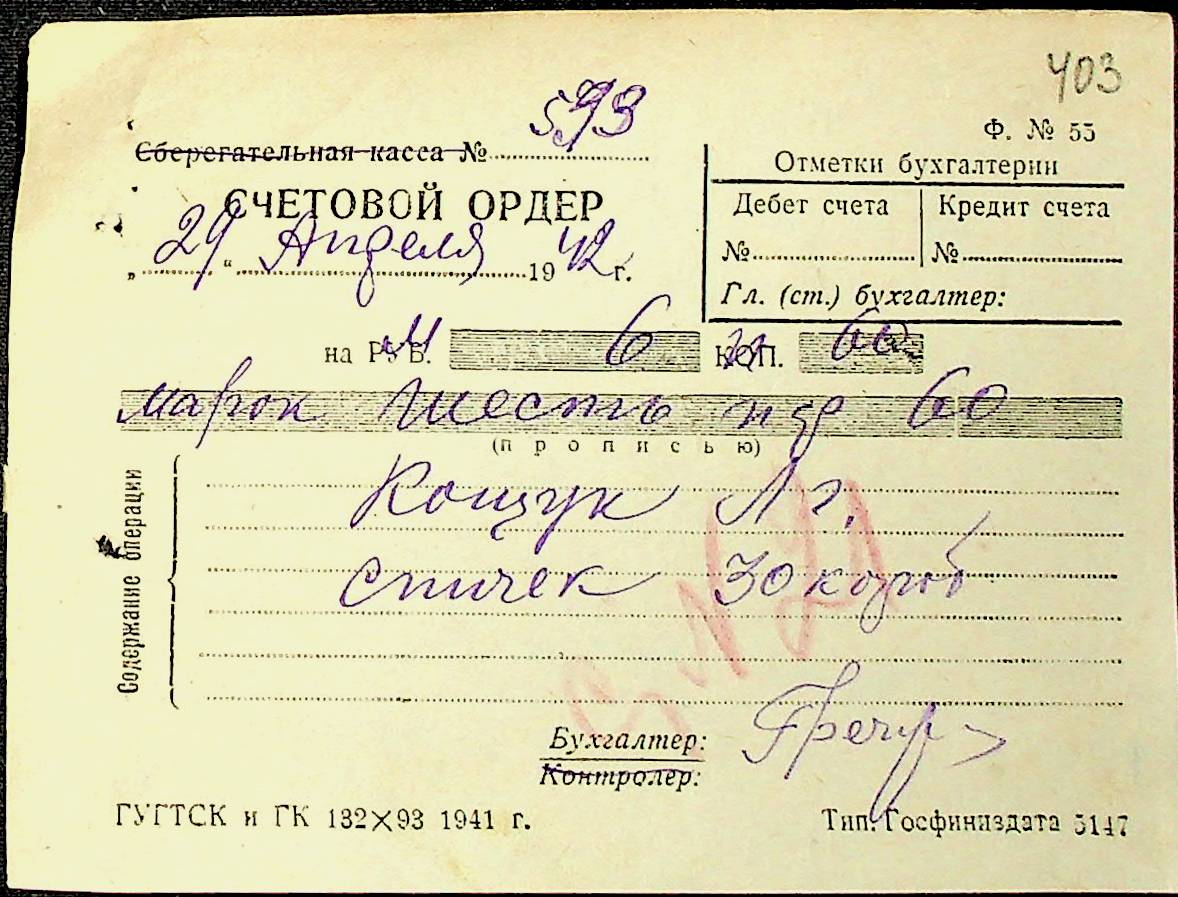 403
593
Ф. № 55
Сберегательная касса №
Отметки бухгалтерии
СЧЕТОВОЙ ОРДЕР
Дебет счета Кредит счета
„29“ Апреля 1942 г.
№ №
Гл. (ст.) бухгалтер:
на РУБ. М 6 КОП. 60
марок Шесть пф 60
(прописью)
Содержание операции
Кощук Л г.
Спичек 30 короб
Бухгалтер:
Контролер:
ГУГТСК и ГК 132×93 1941 г.
Тип. Госфиниздата 5147